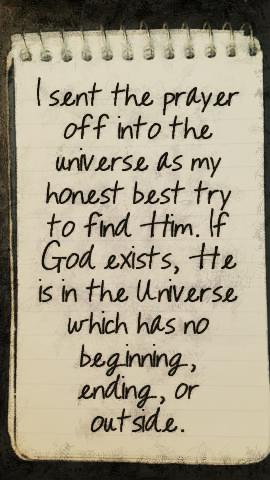 I sent the prayer
off into the
universe as my
honest best try
to find Him. If
God exists, He
is in the Universe
which has no
beginning,
ending, or
outside.